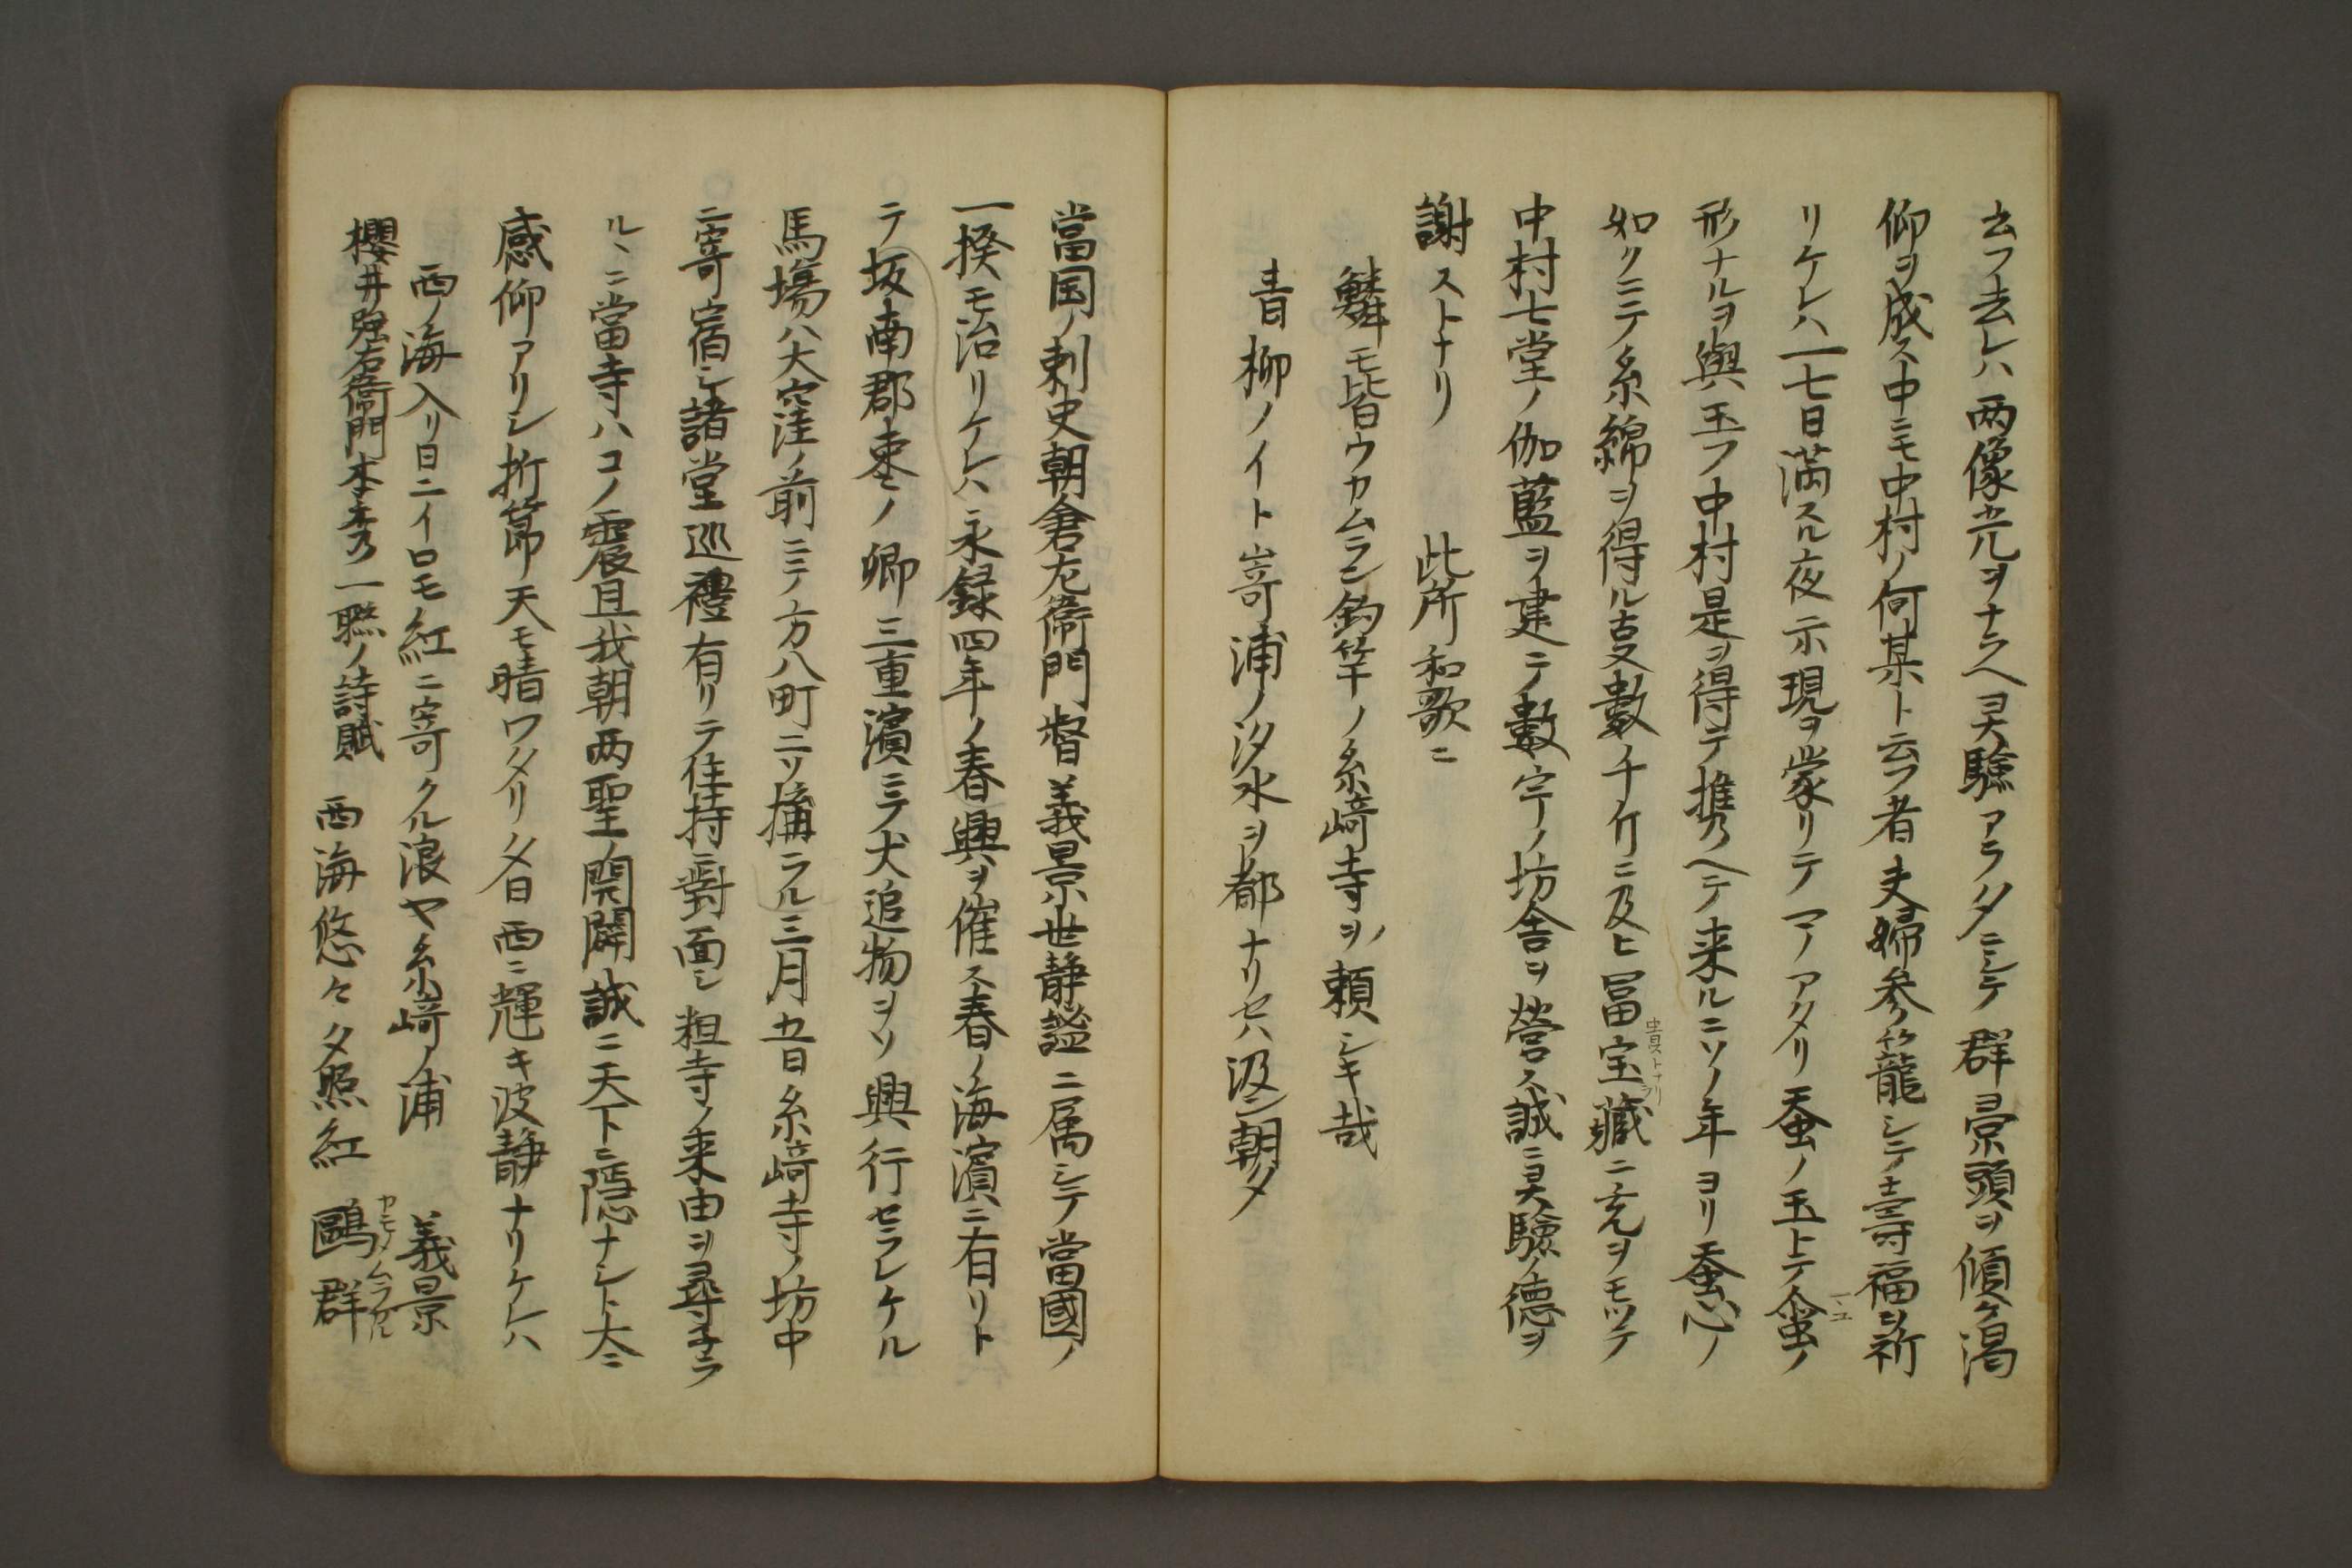 云フ去レハ両像光ヲナラヘ灵驗アラタニシテ群灵頭ヲ傾ケ渇
仰ヲ成ス中ニモ中村ノ何某ト云フ者夫婦参籠シテ壽福ヲ祈
リケレハ一七日満スル夜示現ヲ蒙リテマノアタリ蚕ノ玉トテ蚕ノ
マユ
形ナルヲ與玉フ中村是ヲ得テ携ヘテ来ルニソノ年ヨリ蚕心ノ
如クニテ糸綿ヲ得ル叓數千斤ニ及ヒ冨宝蔵ニ充ヲモツテ
中村七堂ノ伽藍ヲ建テ數宇ノ坊舎ヲ營ス誠ニ灵驗ノ德ヲ
謝ストナリ　此所和歌ニ
鱗モ皆ウカムラン釣竿ノ糸﨑寺ヲ頼シキ哉
青柳ノイト嵜浦ノ汐水ヲ都ナリセハ汲ン朝夕
當国ノ刺史朝倉左衞門督義景世静謐ニ属シテ當國ノ
一揆モ治リケレハ永録四年ノ春興ヲ催ス春ノ海濱ニ有リト
テ坂南郡棗ノ郷三里濱ニテ犬追物ヲソ興行セラレケル
馬塲ハ大窪ノ前ニテ方八町ニソ搆ラル三月五日糸﨑寺ノ坊中
ニ寄宿シ諸堂巡禮有リテ住持ニ對面シ粗寺ノ来由ヲ尋子ラ
ルヽニ當寺ハコノ震旦我朝両聖ノ開闢誠ニ天下ニ隠ナシト大ニ
感仰アリシ折節天モ晴ワタリ夕日西ニ輝キ波静ナリケレハ
西ノ海入リ日ニイロモ紅ニ寄クル浪ヤ糸﨑ノ浦　義景
櫻井強右衞門本秀一聮ノ詩賦　西海悠々夕照紅　鷗群
カモメムラカル